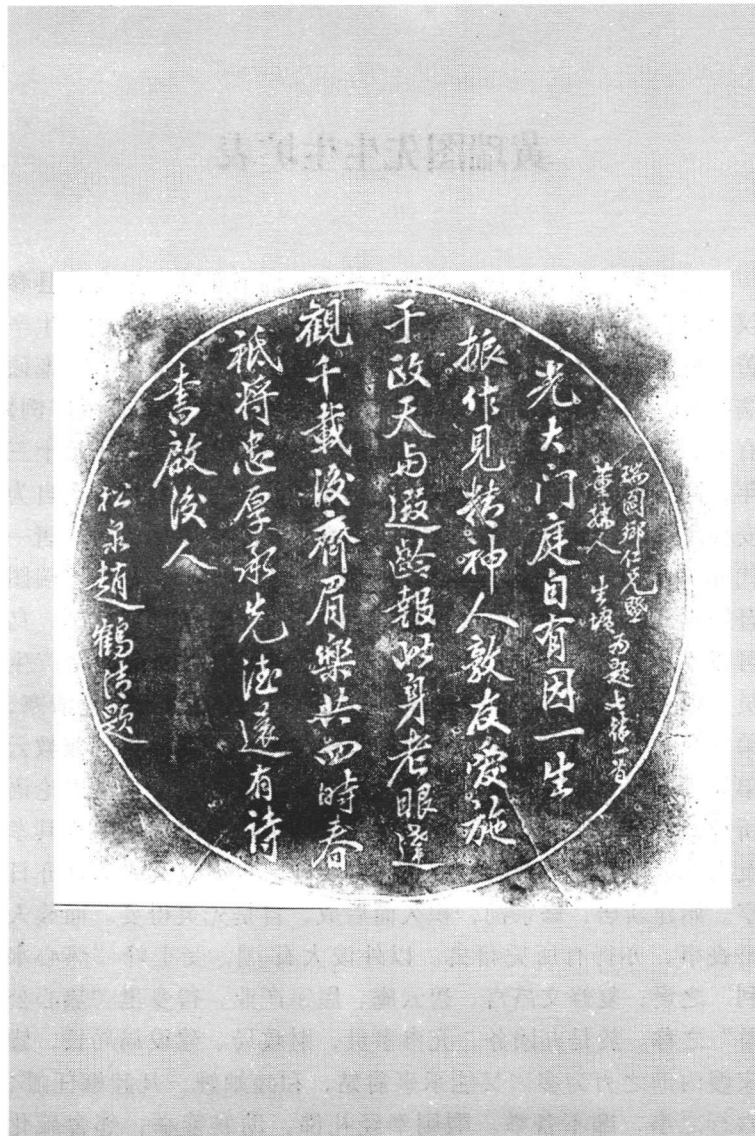 瑞圖鄉仁兄暨
董孺人 生壙 为题七律一首
光大门庭自有因一生
振作見精神人敦友愛施
于政天与遐齡報此身老眼達
觀千載後齊眉樂共四時春
祗将忠厚承先德還有詩
書啟後人
松泉趙鶴清题